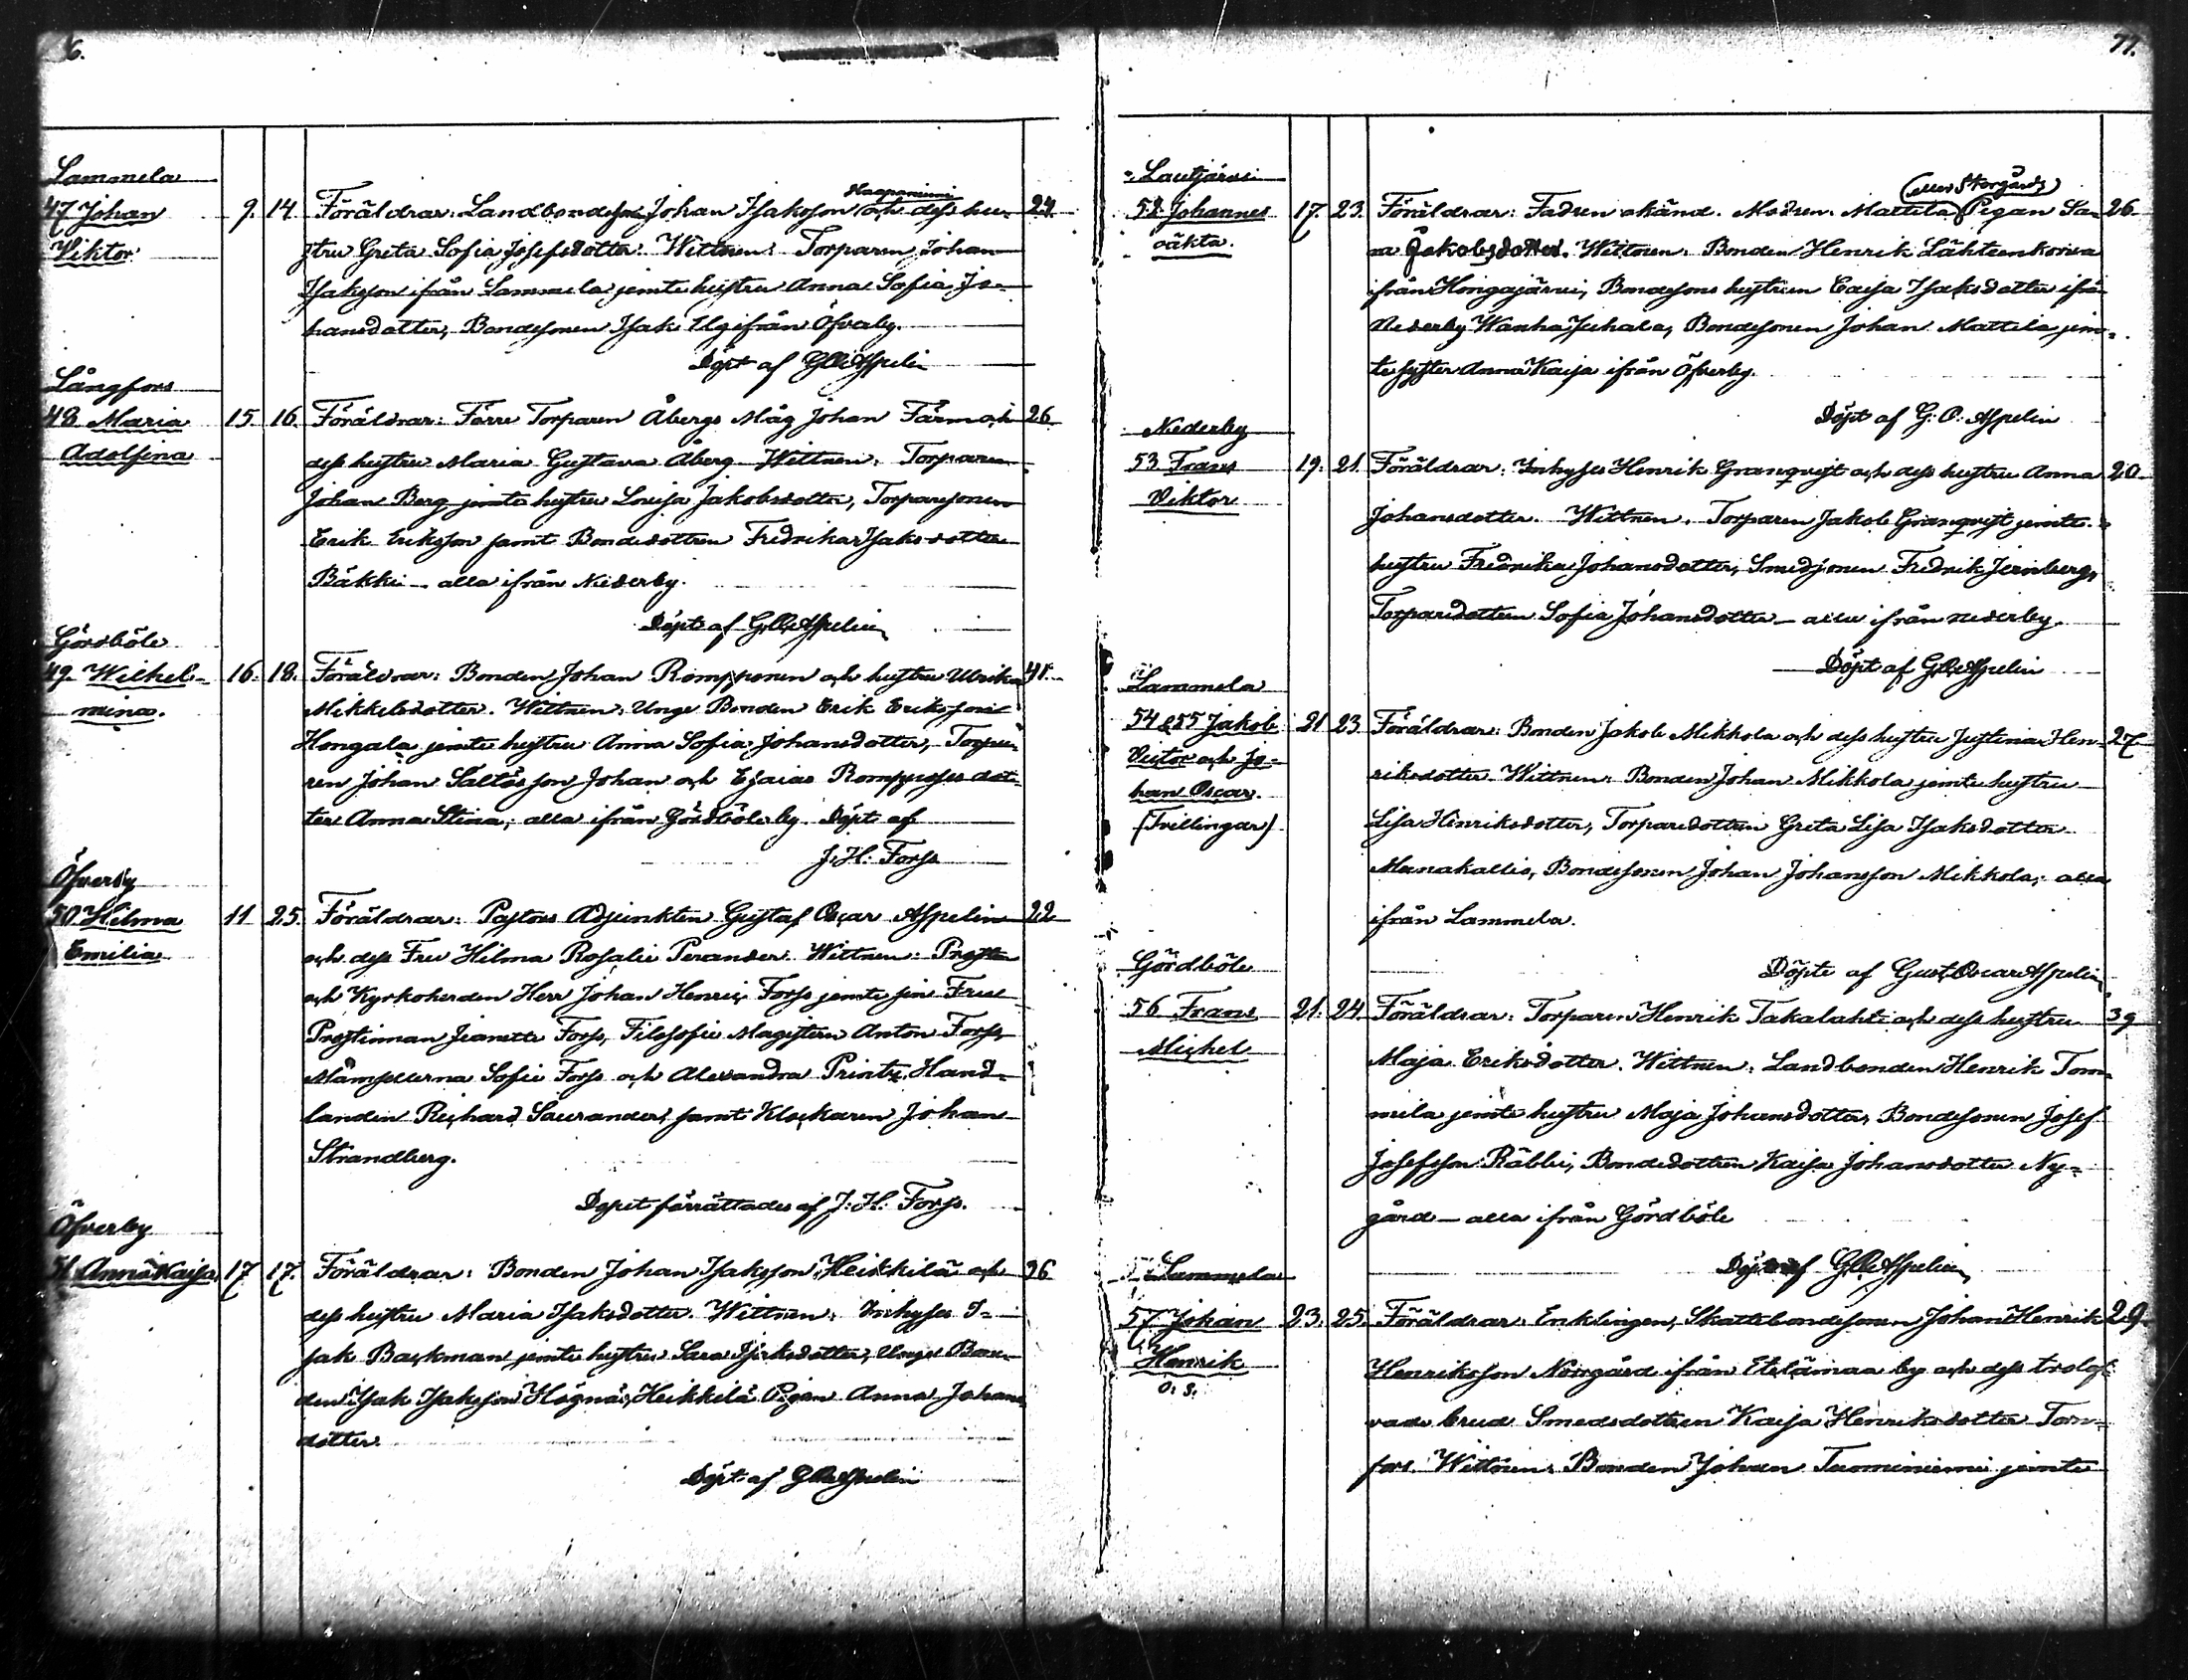 6.
Lammela
47 Johan 9. 14. Föräldrar: Landbondeson Johan Isaksson Haapaniemi och dess hu- 24
Viktor stru Greta Sofia Josefsdotter. Wittnen: Torparen Johan
Isaksson ifrån Lammela jemte hustru Anna Sofia Jo-
hansdotter, Bondesonen Isak Elg ifrån Öfverby.
Döpt af G. O. Aspelin
Långfors
48 Maria 15. 16. Föräldrar: Förre Torparen Åbergs Måg Johan Färm och 26
Adolfina dess hustru Maria Gustava Åberg. Wittnen: Torparen
Johan Berg jemte hustru Lovisa Jakobsdotter, Torparesonen
Erik Eriksson samt Bondedottren Fredrika Isaksdotter
Bäkki – alla ifrån Nederby.
Döpt af G. O. Aspelin
Gördböle
49. Wilhel- 16. 18. Föräldrar: Bonden Johan Rompponen och hustru Ulrika 41.
mina. Mikkelsdotter. Wittnen: Unge Bonden Erik Eriksson
Hongala jemte hustru Anna Sofia Johansdotter, Torpa-
ren Johan Saltös son Johan och Esaias Rompposes dot-
ter Anna Stina, alla ifrån Gördböle by. Döpt af
J. H. Forss
Öfverby
50 Hilma 11 25. Föräldrar: Pastors Adjunkten Gustaf Oscar Aspelin 22
Emilia och dess Fru Hilma Rosalie Perander. Wittnen: Prosten
och Kyrkoherden Herr Johan Henric Forss jemte sin Fru
Prostinnan Jeanette Forss, Filosofie Magistern Anton Forss,
Mamsellerna Sofie Forss och Alexandra Printz, Hand-
landen Richard Saurander, samt Klockaren Johan
Strandberg.
Dopet förrättades af J. H. Forss.
Öfverby
51 Anna Kaisa 17 17. Föräldrar: Bonden Johan Isaksson Heikkilä och 36
dess hustru Maria Isaksdotter. Wittnen: Inhyses I-
sak Backman jemte hustru Sara Isaksdotter, Unge Bon-
den Isak Isaksson Högnäs, Heikkilä Pigan Anna Johans
dotter.
Döpt af G. O. Aspelin
77.
Lautjärvi
52 Johannes 17. 23. Föräldrar: Fadren okänd. Modren: Mattila (eller Storgårds) Pigan Sa- 26.
oäkta. ra Jakobsdotter. Wittnen: Bonden Henrik Lähteenkorva
ifrån Hongajärvi, Bondesons hustrun Caisa Isaksdotter ifrån
Nederby Wanha Juhala, Bondesonen Johan Mattila jem-
te syster Anna Kaisa ifrån Öfverby.
Döpt af G. O. Aspelin
Nederby
53 Frans 19. 21. Föräldrar: Inhyses Henrik Granqvist och dess hustru Anna 20
Viktor Johansdotter. Wittnen: Torparen Jakob Granqvist jemte
hustru Fredrika Johansdotter, Smedsonen Fredrik Jernberg,
Torparedottren Sofia Johansdotter – alla ifrån Nederby.
Döpt af G. O. Aspelin
Lammela
54 & 55 Jakob 21 23. Föräldrar: Bonden Jakob Mikkola och dess hustru Justina Hen- 27
Victor och Jo- riksdotter. Wittnen: Bonden Johan Mikkola jemte hustru
han Oscar. Lisa Henriksdotter, Torparedottren Greta Lisa Isaksdotter
(Tvillingar) Munakallio, Bondesonen Johan Johansson Mikkola, alla
ifrån Lammela.
Döpte af Gust. Oscar Aspelin
Gördböle
56 Frans 21. 24. Föräldrar: Torparen Henrik Takalahti och dess hustru 39
Michel Maja Eriksdotter. Wittnen: Landbonden Henrik Tom-
mila jemte hustru Maja Johansdotter, Bondesonen Josef
Josefsson Räbbi, Bondedottren Kaisa Johansdotter Ny-
gård – alla ifrån Gördböle
Döpt af G. O. Aspelin
Lammela
57 Johan 23. 25. Föräldrar: Enklingen, Skattebondesonen Johan Henrik 29.
Henrik Henriksson Norrgård ifrån Etelämaa by och dess trolof-
o. ä. vade brud Smedsdottren Kaisa Henriksdotter Torn-
fors. Wittnen: Bonden Johan Tuominiemi jemte